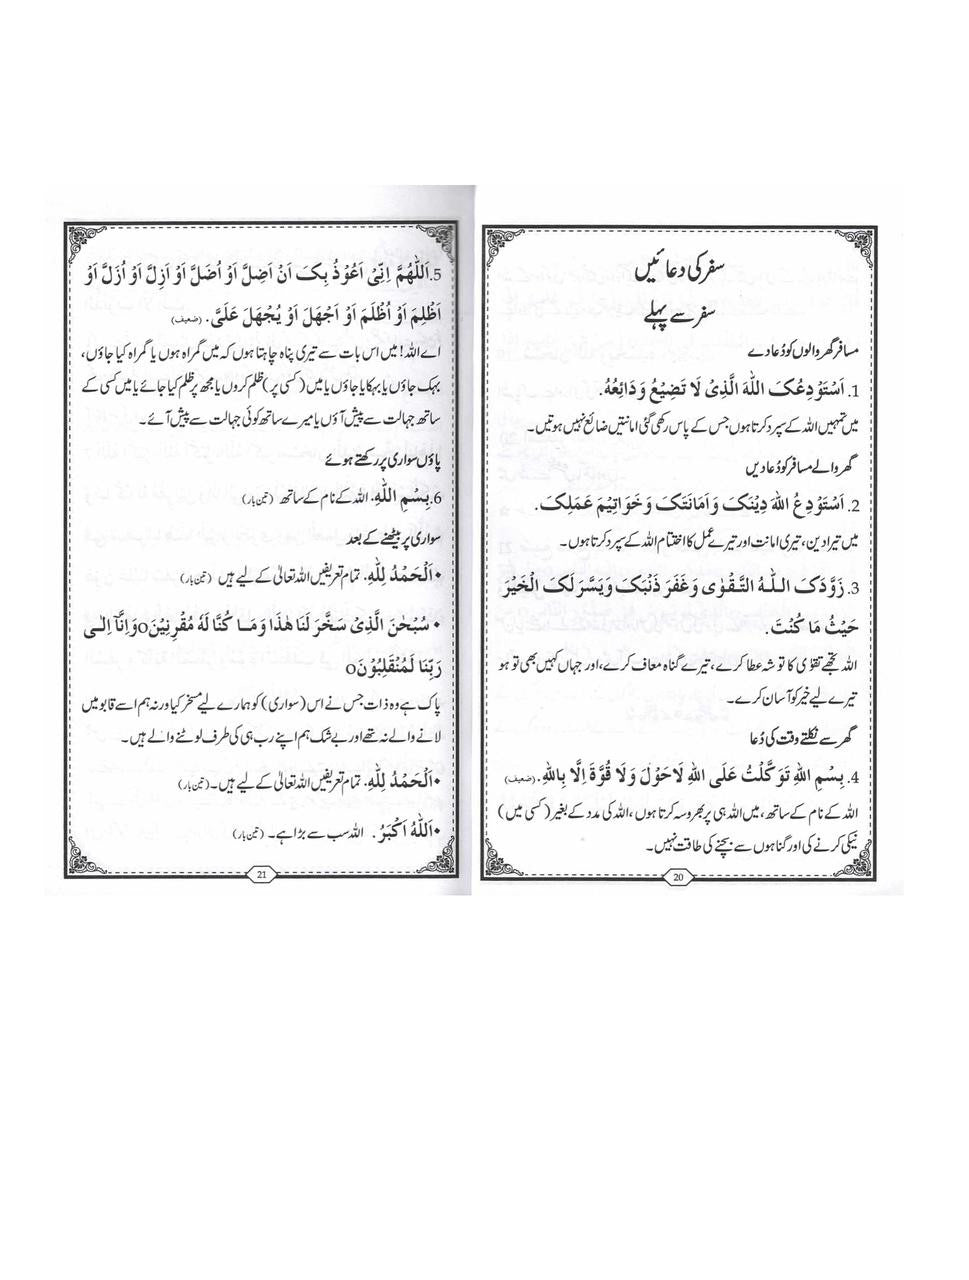 سفر کی دعائیں
سفر سے پہلے
مسافر گھر والوں کو دُعا دے
1. اَسْتَوْدِعُکَ اللّٰہَ الَّذِیْ لَا تَضِیْعُ وَدَائِعُہٗ.
میں تمہیں اللہ کے سپرد کرتا ہوں جس کے پاس رکھی گئی امانتیں ضائع نہیں ہوتیں۔
گھر والے مسافر کو دُعا دیں
2. اَسْتَوْدِعُ اللّٰہَ دِیْنَکَ وَاَمَانَتَکَ وَخَوَاتِیْمَ عَمَلِکَ.
میں تیرا دین، تیری امانت اور تیرے عمل کا اختتام اللہ کے سپرد کرتا ہوں۔
3. زَوَّدَکَ اللّٰہُ التَّقْوٰی وَغَفَرَ ذَنْبَکَ وَیَسَّرَ لَکَ الْخَیْرَ
حَیْثُ مَا کُنْتَ.
اللہ تجھے تقوٰی کا توشہ عطا کرے، تیرے گناہ معاف کرے، اور جہاں کہیں بھی تو ہو
تیرے لیے خیر کو آسان کرے۔
گھر سے نکلتے وقت کی دُعا
4. بِسْمِ اللّٰہِ تَوَکَّلْتُ عَلَی اللّٰہِ لَاحَوْلَ وَلَا قُوَّۃَ اِلَّا بِاللّٰہِ. (ضعیف)
اللہ کے نام کے ساتھ، میں اللہ ہی پر بھروسہ کرتا ہوں، اللہ کی مدد کے بغیر (کسی میں)
نیکی کرنے کی اور گناہوں سے بچنے کی طاقت نہیں۔
20
5. اَللّٰھُمَّ اِنِّیْ اَعُوْذُ بِکَ اَنْ اَضِلَّ اَوْ اُضَلَّ اَوْ اَزِلَّ اَوْ اُزَلَّ اَوْ
اَظْلِمَ اَوْ اُظْلَمَ اَوْ اَجْھَلَ اَوْ یُجْھَلَ عَلَیَّ. (ضعیف)
اے اللہ! میں اس بات سے تیری پناہ چاہتا ہوں کہ میں گمراہ ہوں یا گمراہ کیا جاؤں،
بہک جاؤں یا بہکایا جاؤں یا میں (کسی پر) ظلم کروں یا مجھ پر ظلم کیا جائے یا میں کسی کے
ساتھ جہالت سے پیش آؤں یا میرے ساتھ کوئی جہالت سے پیش آئے۔
پاؤں سواری پر رکھتے ہوئے
6. بِسْمِ اللّٰہِ. اللہ کے نام کے ساتھ (تین بار)
سواری پر بیٹھنے کے بعد
• اَلْحَمْدُ لِلّٰہِ. تمام تعریفیں اللہ تعالٰی کے لیے ہیں (تین بار)
• سُبْحٰنَ الَّذِیْ سَخَّرَ لَنَا ھٰذَا وَمَا کُنَّا لَہٗ مُقْرِنِیْنَo وَاِنَّآ اِلٰی
رَبِّنَا لَمُنْقَلِبُوْنَo
پاک ہے وہ ذات جس نے اس (سواری) کو ہمارے لیے مسخر کیا ورنہ ہم اسے قابو میں
لانے والے نہ تھے اور بے شک ہم اپنے رب ہی کی طرف لوٹنے والے ہیں۔
• اَلْحَمْدُ لِلّٰہِ. تمام تعریفیں اللہ تعالٰی کے لیے ہیں۔ (تین بار)
• اَللّٰہُ اَکْبَرُ. اللہ سب سے بڑا ہے۔ (تین بار)
21